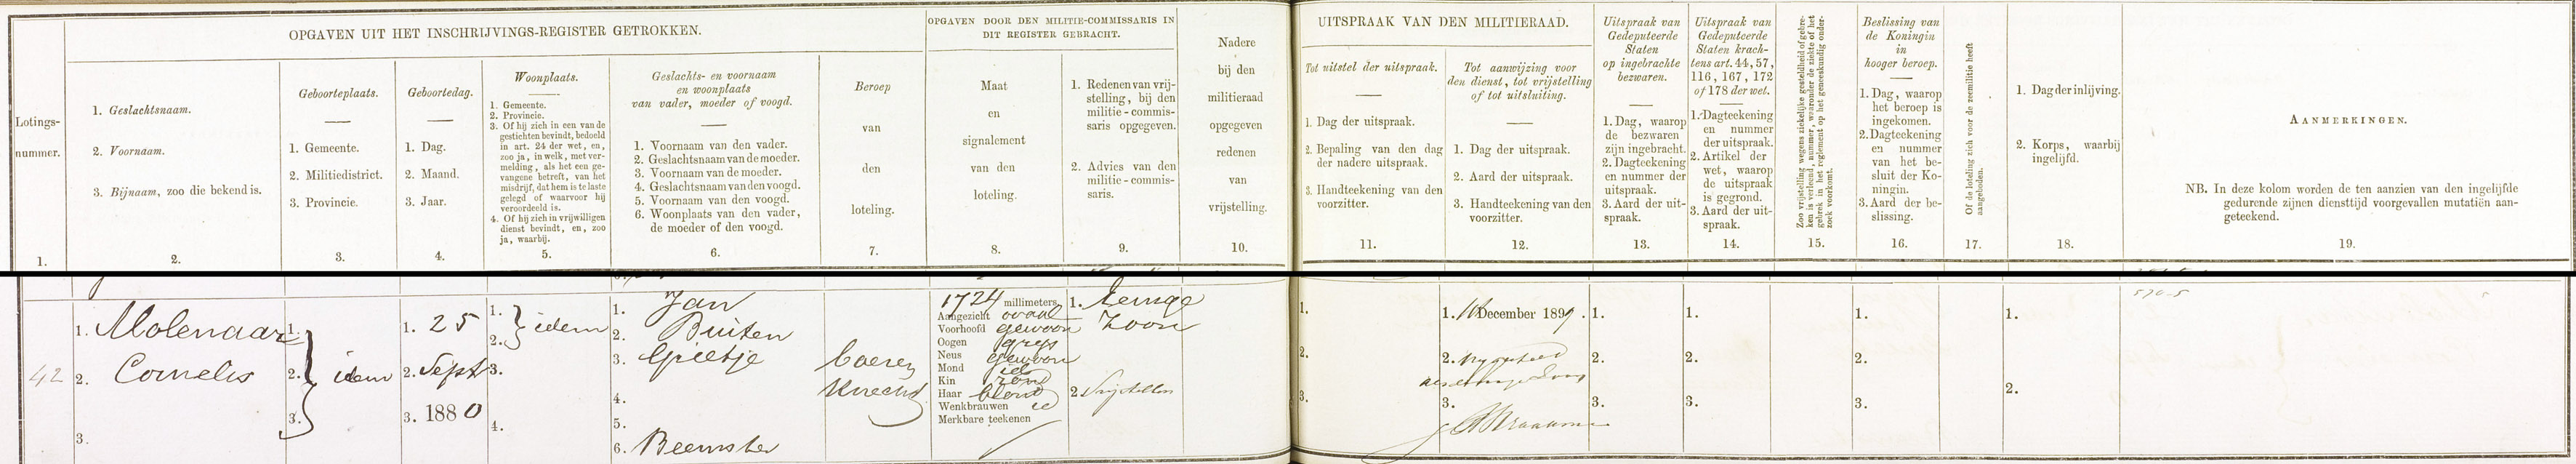 OPGAVEN UIT HET INSCHRIJVINGS-REGISTER GETROKKEN.
OPGAVEN DOOR DEN MILITIE-COMMISSARIS IN
DIT REGISTER GEBRACHT.
UITSPRAAK VAN DEN MILITIERAAD.
Lotings-
nummer.
1.
1. Geslachtsnaam.
2. Voornaam.
3. Bijnaam, zoo die bekend is.
2.
Geboorteplaats.
1. Gemeente.
2. Militiedistrict.
3. Provincie.
3.
Geboortedag.
1. Dag.
2. Maand.
3. Jaar.
4.
Woonplaats.
1. Gemeente.
2. Provincie.
3. Of hij zich in een van de
gestichten bevindt, bedoeld
in art. 24 der wet, en,
zoo ja, in welk, met ver-
melding, als het een ge-
vangene betreft, van het
misdrijf, dat hem is te laste
gelegd of waarvoor hij
veroordeeld is.
4. Of hij zich in vrijwilligen
dienst bevindt, en, zoo
ja, waarbij.
5.
Geslachts- en voornaam
en woonplaats
van vader, moeder of voogd.
1. Voornaam van den vader.
2. Geslachtsnaam van de moeder.
3. Voornaam van de moeder.
4. Geslachtsnaam van den voogd.
5. Voornaam van den voogd.
6. Woonplaats van den vader,
de moeder of den voogd.
6.
Beroep
van
den
loteling.
7.
Maat
en
signalement
van den
loteling.
8.
1. Redenen van vrij-
stelling, bij den
militie-commis-
saris opgegeven.
2. Advies van den
militie-commis-
saris.
9.
Nadere
bij den
militieraad
opgegeven
redenen
van
vrijstelling.
10.
Tot uitstel der uitspraak.
1. Dag der uitspraak.
2. Bepaling van den dag
der nadere uitspraak.
3. Handteekening van den
voorzitter.
11.
Tot aanwijzing voor
den dienst, tot vrijstelling
of tot uitsluiting.
1. Dag der uitspraak.
2. Aard der uitspraak.
3. Handteekening van den
voorzitter.
12.
Uitspraak van
Gedeputeerde
Staten
op ingebrachte
bezwaren.
1. Dag, waarop
de bezwaren
zijn ingebracht.
2. Dagteekening
en nummer der
uitspraak.
3. Aard der uit-
spraak.
13.
Uitspraak van
Gedeputeerde
Staten krach-
tens art. 44, 57,
116, 167, 172
of 178 der wet.
1. Dagteekening
en nummer
der uitspraak.
2. Artikel der
wet, waarop
de uitspraak
is gegrond.
3. Aard der uit-
spraak.
14.
Zoo vrijstelling wegens ziekelijke gesteldheid of gebre-
ken is verleend, nummer, waaronder de ziekte of het
gebrek in het reglement op het geneeskundig onder-
zoek voorkomt.
15.
Beslissing van
de Koningin
in
hooger beroep.
1. Dag, waarop
het beroep is
ingekomen.
2. Dagteekening
en nummer
van het be-
sluit der Ko-
ningin.
3. Aard der be-
slissing.
16.
Of de loteling zich voor de zeemilitie heeft
aangeboden.
17.
1. Dag der inlijving.
2. Korps, waarbij
ingelijfd.
18.
AANMERKINGEN.
NB. In deze kolom worden de ten aanzien van den ingelijfde
gedurende zijnen diensttijd voorgevallen mutatiën aan-
geteekend.
19.
42
1. Molenaar
2. Cornelis
3.
1.
2. idem
3.
1. 25
2. Sept
3. 1880
1. idem
2.
3.
4.
1. Jan
2. Buiten
3. Grietje
4.
5.
6. Beemster
boeren
knecht
1724 millimeters
Aangezicht ovaal
Voorhoofd gewoon
Oogen grijs
Neus gewoon
Mond id
Kin rond
Haar blond
Wenkbrauwen id
Merkbare teekenen
1. Eenige
Zoon
2. Vrijstellen
1.
2.
3.
1. 16 December 1899.
2. Vrijgesteld
als eenige Zoon
3.
1.
2.
3.
1.
2.
3.
1.
2.
3.
1.
2.